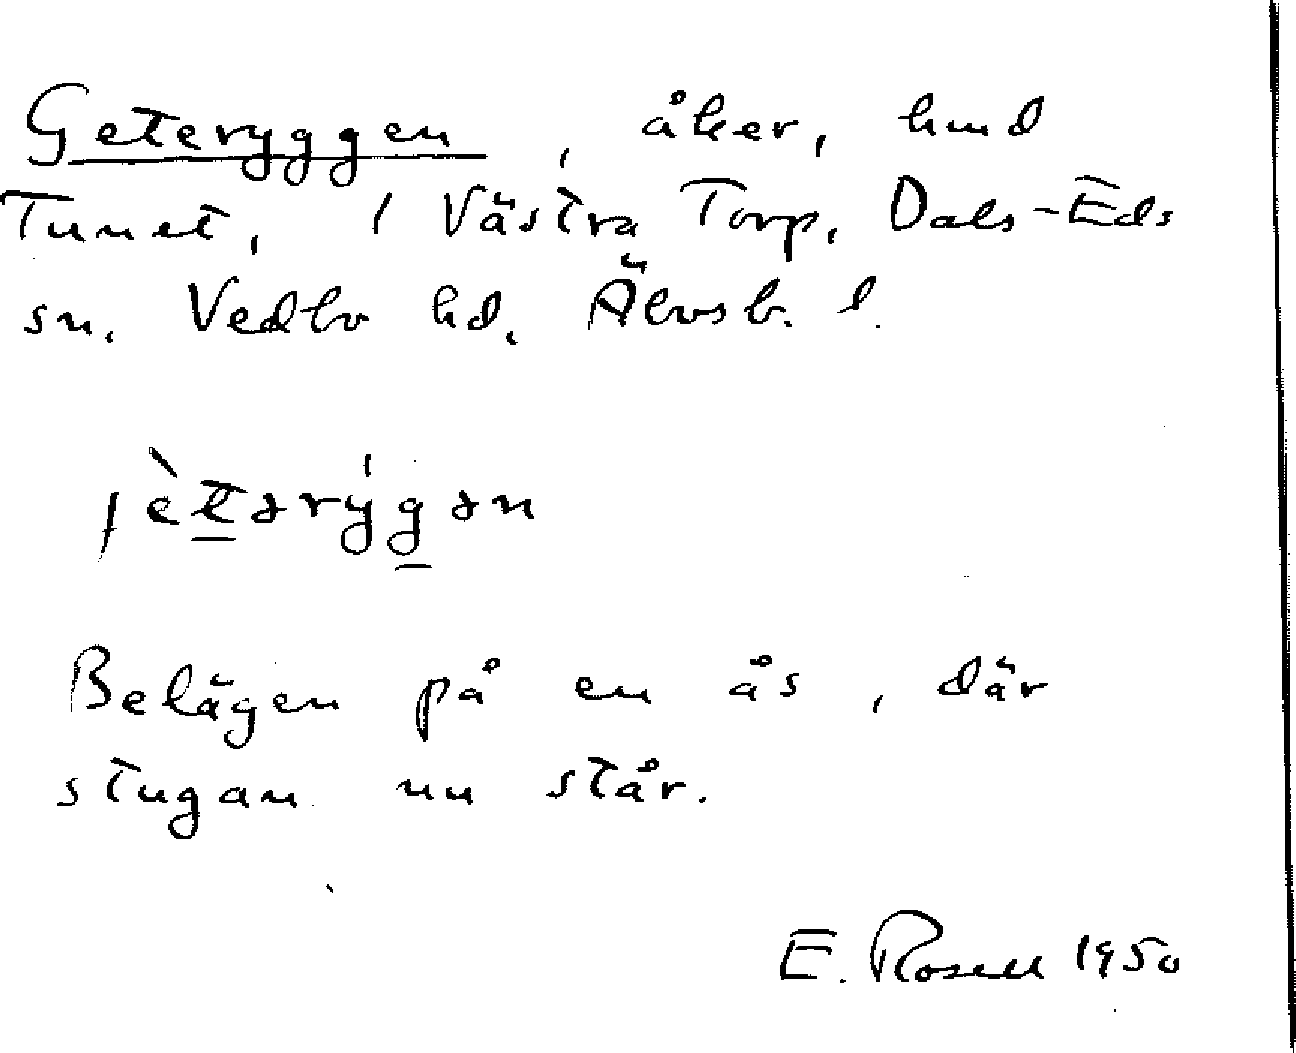 Geteryggen, åker, hmd
Tunet, i Västra Torp, Dals-Eds
sn. Vedbo hd. Älvsb. l.
jètərýgən
Belägen på en ås, där
stugan nu står.
E. Rosell 1950